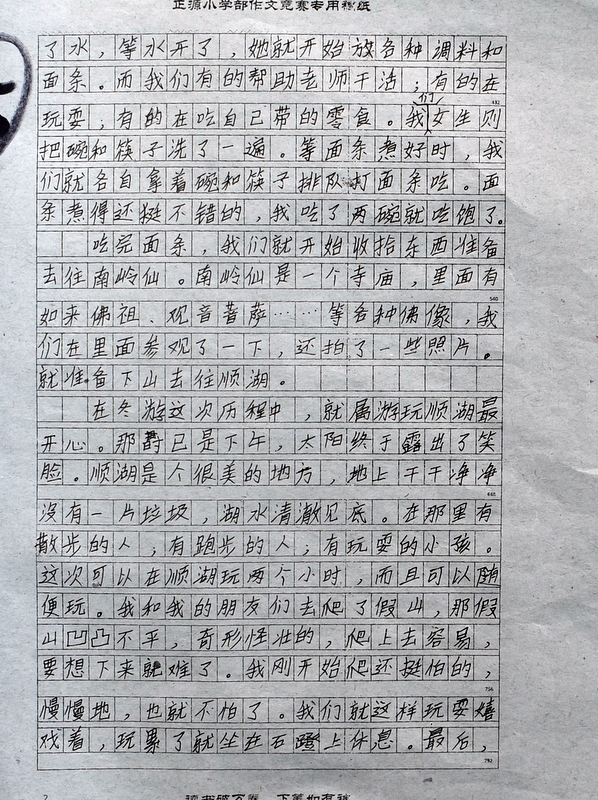 正源小学部作文竞赛专用稿纸
了水，等水开了，她就开始放各种调料和
面条。而我们有的帮助老师干活；有的在
玩耍；有的在吃自己带的零食。我们女生则
432
把碗和筷子洗了一遍。等面条煮好时，我
们就各自拿着碗和筷子排队打面条吃。面
条煮得还挺不错的，我吃了两碗就吃饱了。
吃完面条，我们就开始收拾东西准备
去往南岭仙。南岭仙是一个寺庙，里面有
540
如来佛祖、观音菩萨……等各种佛像，我
们在里面参观了一下，还拍了一些照片。
就准备下山去往顺湖。
在冬游这次历程中，就属游玩顺湖最
开心。那时已是下午，太阳终于露出了笑
脸。顺湖是个很美的地方，地上干干净净
648
没有一片垃圾，湖水清澈见底。在那里有
散步的人；有跑步的人；有玩耍的小孩。
这次可以在顺湖玩两个小时，而且可以随
便玩。我和我的朋友们去爬了假山，那假
山凹凸不平，奇形怪壮的，爬上去容易，
要想下来就难了。我刚开始爬还挺怕的，
756
慢慢地，也就不怕了。我们就这样玩耍嬉
戏着，玩累了就坐在石蹬上休息。最后，
792